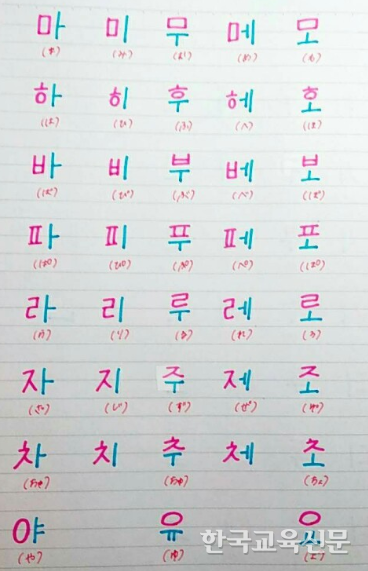 마 미 무 메 모
(ま) (み) (む) (め) (も)
하 히 후 헤 호
(は) (ひ) (ふ) (へ) (ほ)
바 비 부 베 보
(ば) (び) (ぶ) (べ) (ぼ)
파 피 푸 페 포
(ぱ) (ぴ) (ぷ) (ぺ) (ぽ)
라 리 루 레 로
(ら) (り) (る) (れ) (ろ)
자 지 주 제 조
(ざ) (じ) (ず) (ぜ) (ぞ)
차 치 추 체 초
(ちゃ) (ちゅ) (ちょ)
야 유 요
(や) (ゆ) (よ)
한국교육신문